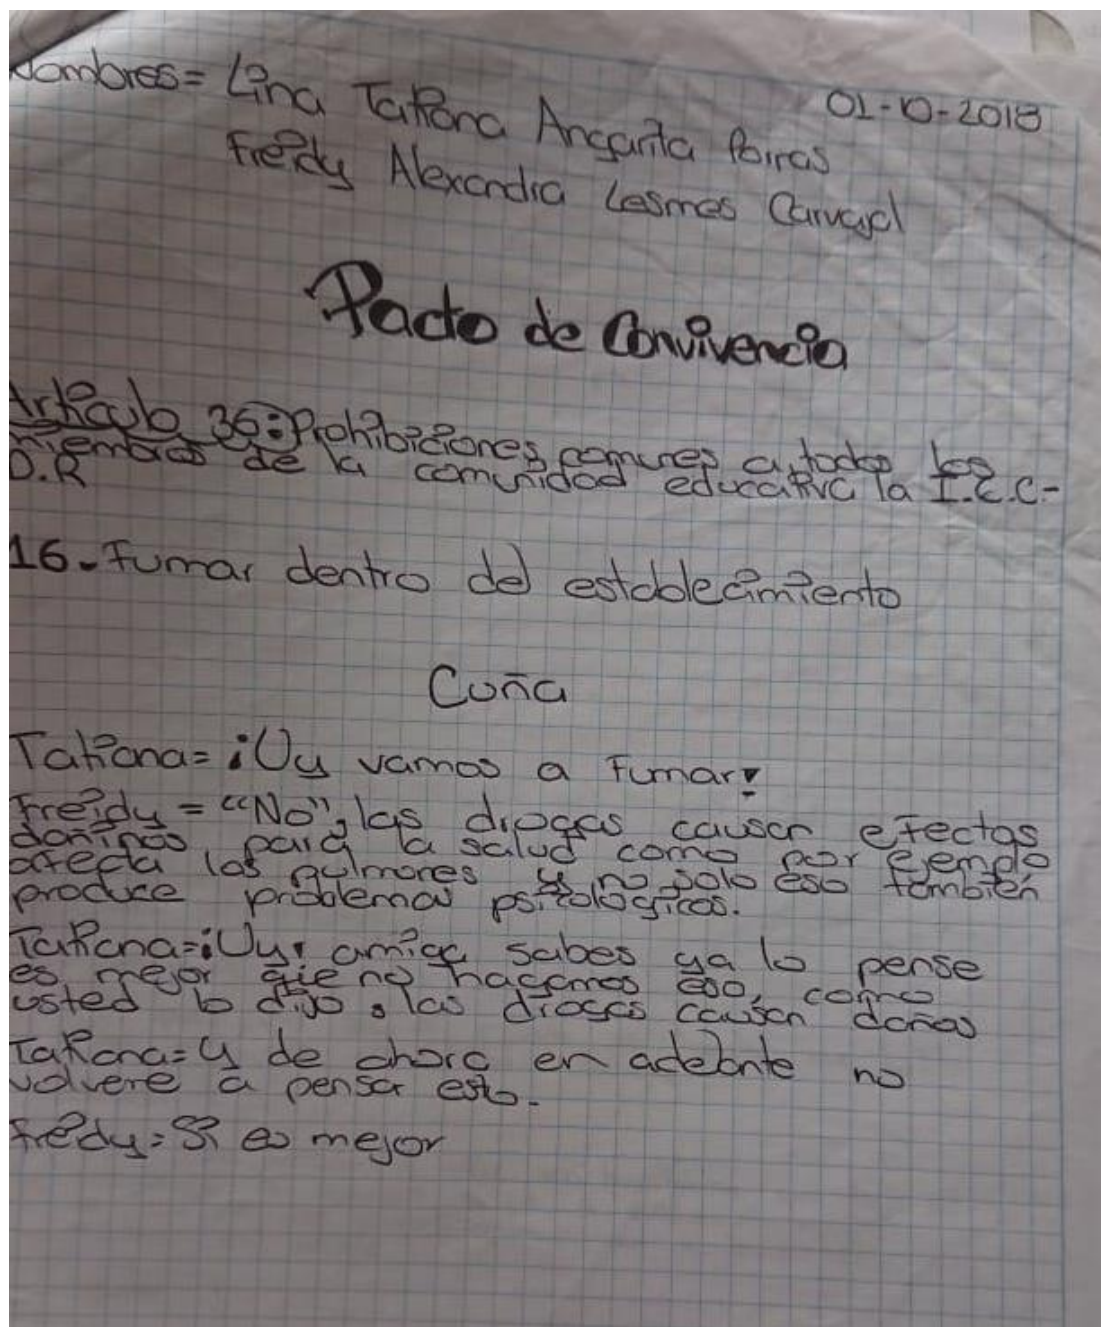 Nombres= Lina Tatiana Angarita Porras 01-10-2018
Freidy Alexandra Lesmes Carvajal
Pacto de Convivencia
Articulo 36: Prohibiciones comunes a todos los
miembros de la comunidad educativa la I.E.C-
D.R
16-Fumar dentro del establecimiento
Cuña
Tatiana= ¡Uy vamos a fumar!
Freidy = "No", las drogas causan efectos
dañinos para la salud como por ejemplo
afecta los pulmones y no solo eso también
produce problemas psicologicos.
Tatiana=¡Uy! amiga sabes ya lo pense
es mejor que no hagamos eso, como
usted lo dijo, las drogas causan daños
Tatiana= y de ahora en adelante no
volvere a pensa esto.
Freidy= Si es mejor